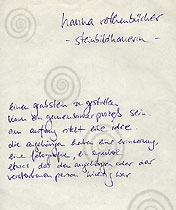 hanna rothenbücher
- steinbildhauerin -
einen grabstein zu gestalten
kann ein gemeinsamer prozeß sein.
am anfang steht eine idee.
die angehörigen haben eine erinnerung,
eine lebensphase, ein symbol
etwas das den angehörigen oder der
verstorbenen person wichtig war